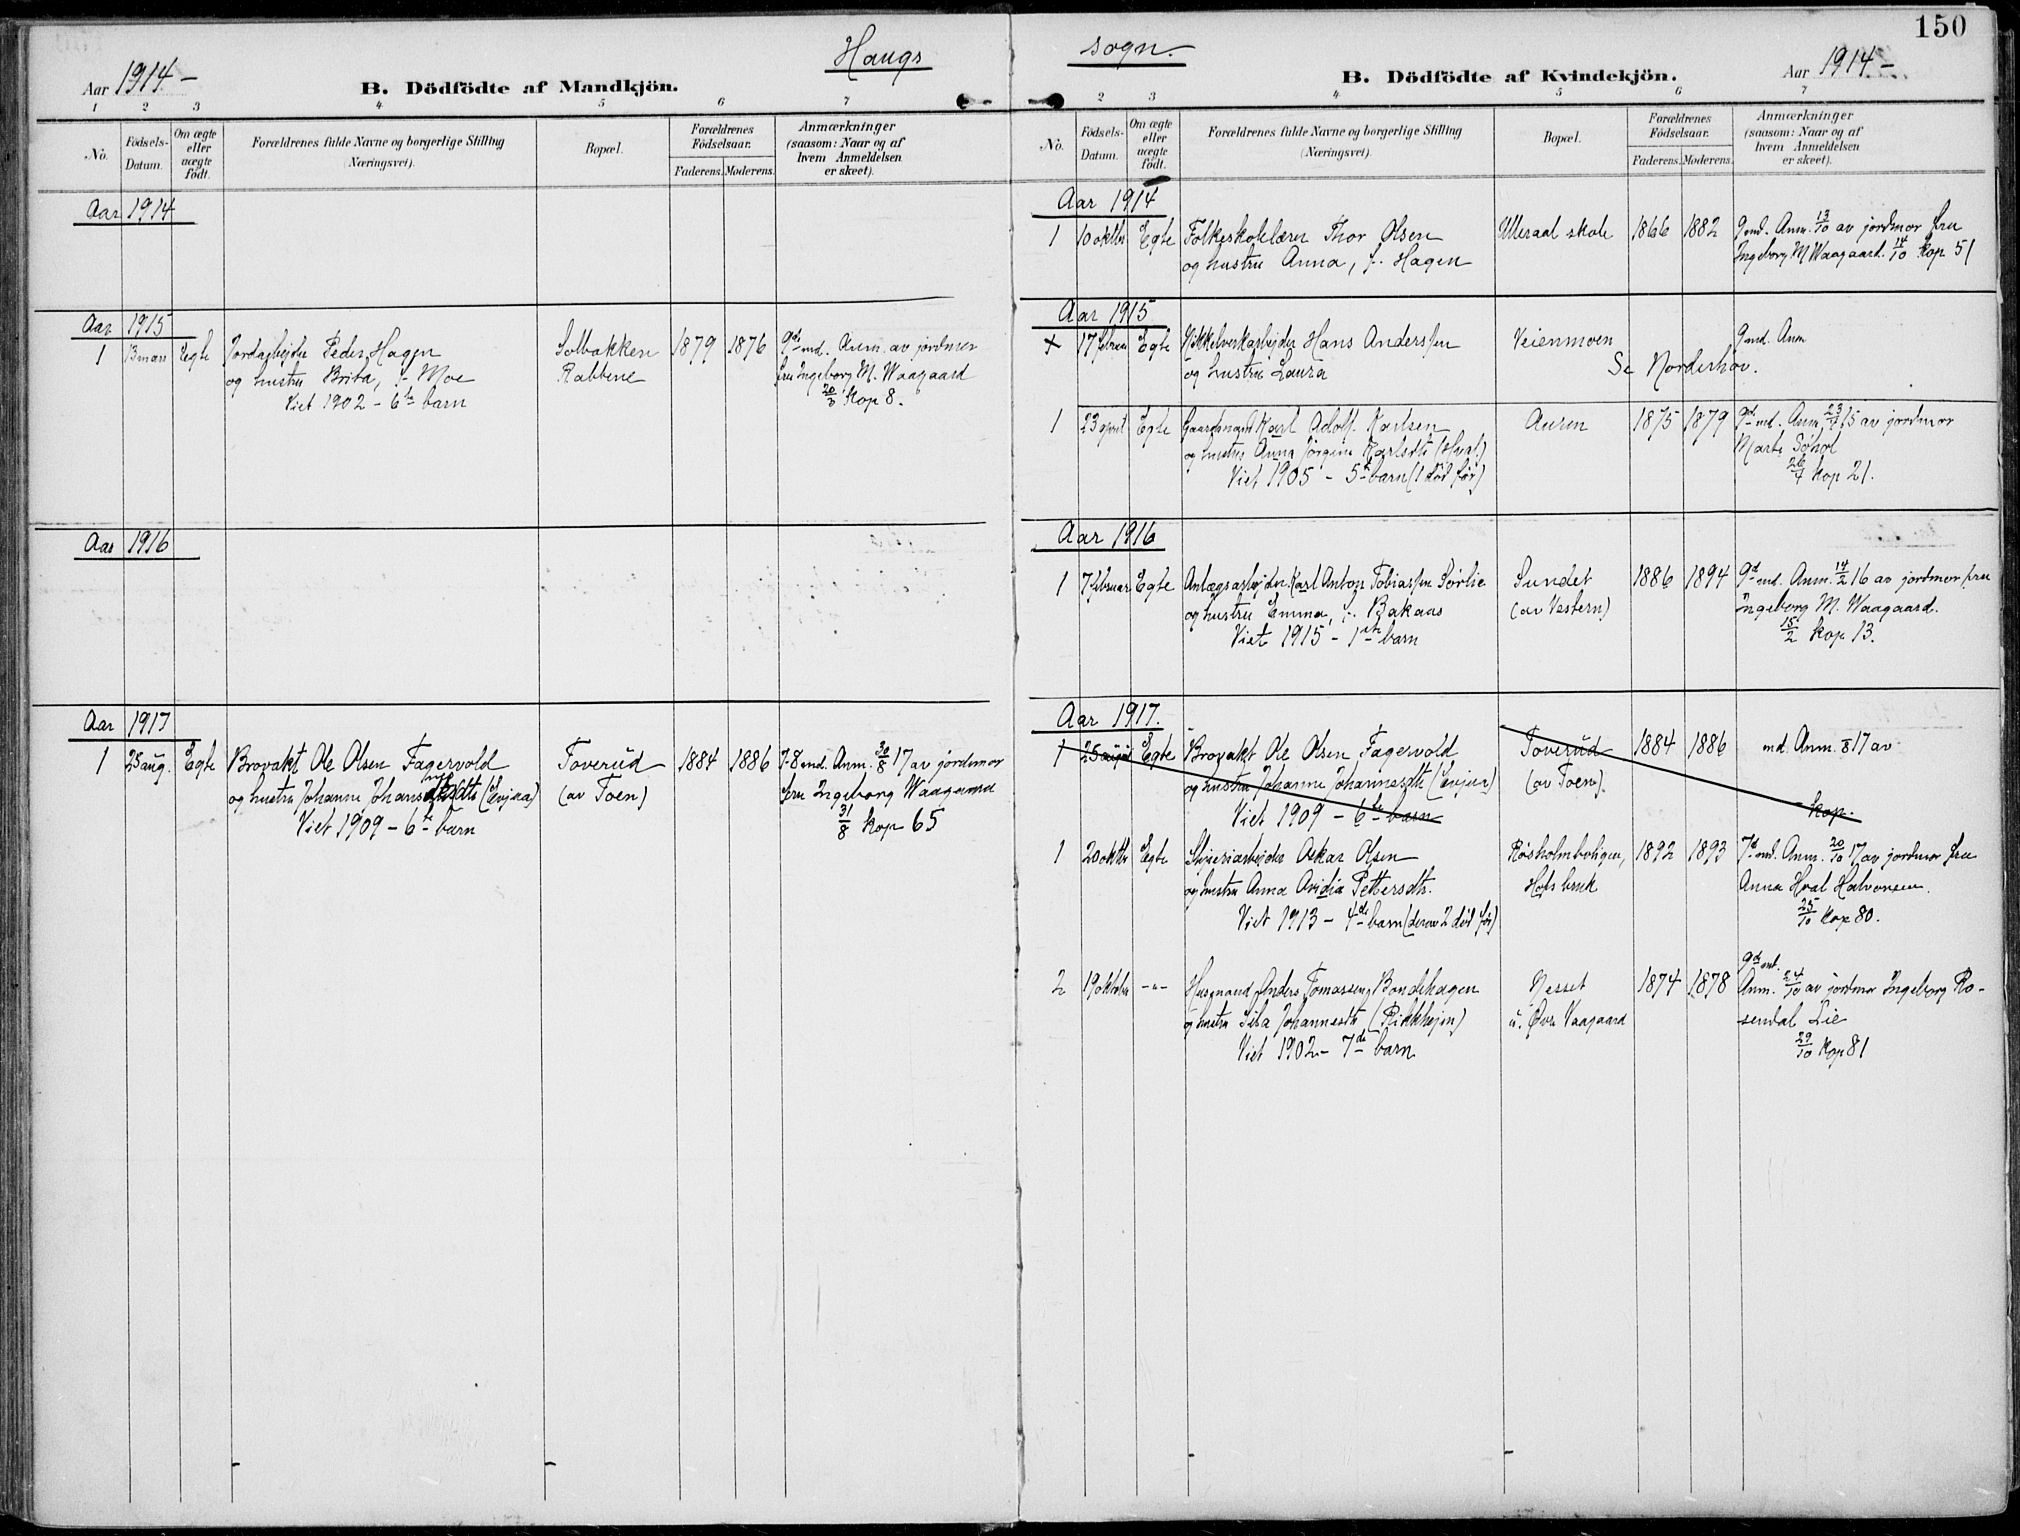 Haugs
Aar 1914.-
B. Dödfödte af Mandkjön.
1 2 3 4 5 6 7
No.
Födsels-
Datum.
Om ægte
eller
uægte
født.
Forældrenes fulde Navne og borgerlige Stilling
(Næringsvei).
Bopæl.
Forældrenes
Födselsaar.
Faderens. Moderens.
Anmærkninger
(saasom: Naar og af
hvem Anmeldelsen
er skeet).
Aar 1914
Aar 1915
1 13 mars Ægte Jordarbejder Peder Hagen Solbakken 1879 1876 9de md. Anm. av jordmor
og hustru Brita, f. Moe Rabbene fru Ingeborg M. Waagaard
Viet 1902 - 6te barn 20/3 kop 8.
Aar 1916
Aar 1917
1 25 aug. Egte Brovakt Ole Olsen Fagervold Toverud 1884 1886 7-8 md. Anm. 30/8 17 av jordmor
og hustru Johanne (Evjua) (av Toen) fru Ingeborg Waagaard
Viet 1909 - 6te barn 31/8 kop 65
150
sogn.
B. Dödfödte af Kvindekjön.
Aar 1914-
2 3 4 5 6 7
No.
Födsels-
Datum.
Om ægte
eller
uægte
født.
Forældrenes fulde Navne og borgerlige Stilling
(Næringsvei).
Bopæl.
Forældrenes
Födselsaar.
Faderens. Moderens.
Anmærkninger
(saasom: Naar og af
hvem Anmeldelsen
er skeet).
Aar 1914
1 10 oktbr Egte Folkeskolelærer Thor Olsen Ulleraal skole 1866 1882 9 md. Anm. 13/10 av jordmor fru
og hustru Anna, f. Hagen Ingeborg M Waagaard. 14/10 kop 51
Aar 1915
+ 17 februar Egte Nikkelverkarbejder Hans Anderssen Veienmoen 9 md. Anm
og hustru Laura Se Norderhov.
1 23 april Egte Gaardmand Karl Adolf Karlsen Auren 1875 1879 9de md. Anm. 23/4 15 av jordmor
og hustru Anna Jørgine Karlsdt (Hval) Marte Søhol
Viet 1905 - 5te barn (1 død før) 26/4 kop 21.
Aar 1916
1 7 februar Egte Anlægsarbejder Karl Anton Tobiassen Sørlie Sundet 1886 1894 9d md. Anm. 14/2 16 av jordmor fru
og hustru Emma, f. Bakaas (av Vestern) Ingeborg M. Waagaard.
Viet 1915 - 1ste barn 15/2 kop 13.
Aar 1917.
1 25 august Egte Brovakt Ole Olsen Fagervold Toverud 1884 1886 md. Anm. /8 17 av
og hustru Johanne Johannesdt (Evjua) (av Toen).
Viet 1909 - 6te barn kop.
1 20 oktbr Egte Sliperiarbejder Oskar Olsen Røsholmboligen, 1892 1893 7d md. Anm. 20/10 17 av jordmor fru
og hustru Anna Ovidia Pettersdt. Hofs bruk Anna Hval Halvorsen.
Viet 1913 - 4de barn (derav 2 død før) 25/10 kop 80.
9de md.
2 19 oktober -"- Husmand Anders Tomassen Bondehagen Nesset 1874 1878 Anm. 24/10 av jordmor Ingeborg Ro-
og hustru Johannesdt u. Øvre Vaagaard sendal Lie
Viet 1902 - 7de barn 29/10 kop 81